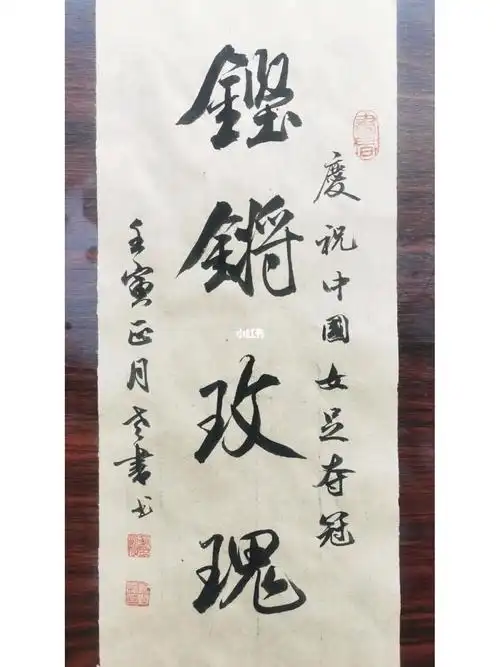 慶祝中國女足夺冠
鏗鏘玫瑰
壬寅正月老書弋
小红书